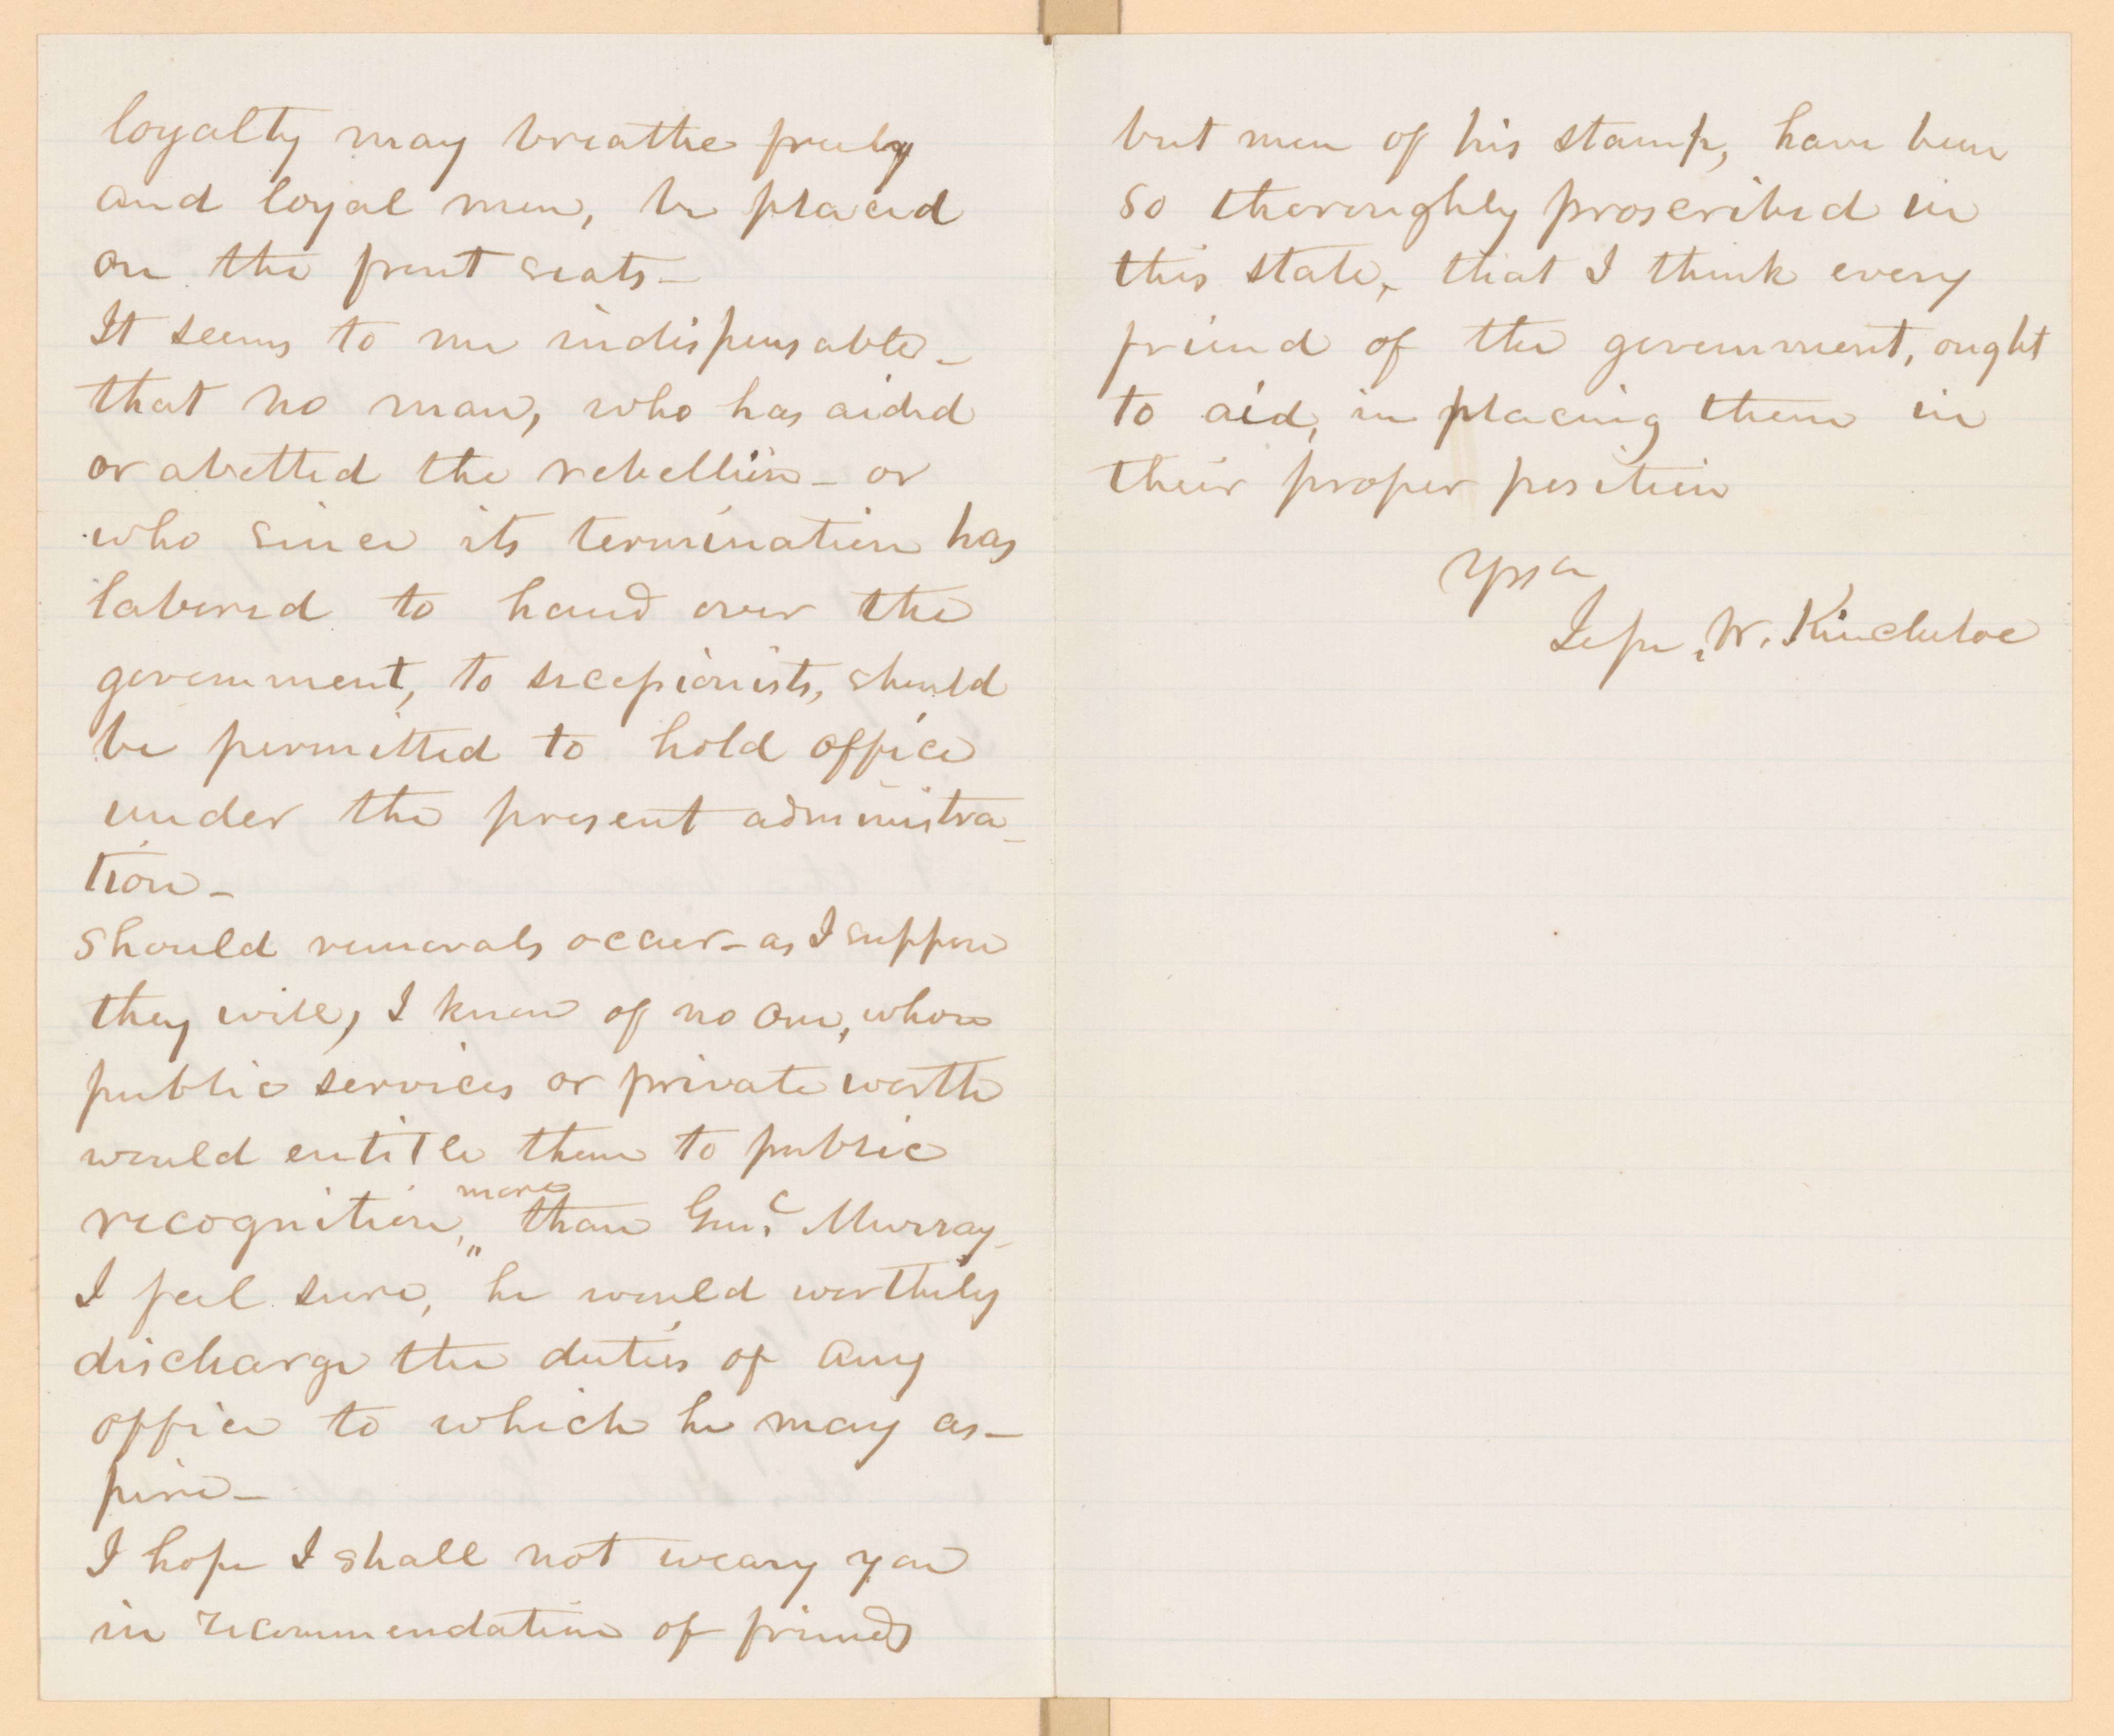 loyalty may breathe freely
and loyal men, be placed
on the front seats_
It seems to me indispensable_
that no man, who has aided
or abetted the rebellion_ or
who since its termination has
labored to hand over the
government, to secessionists, should
be permitted to hold office
under the present administra_
tion_
Should removals occur_ as I suppose
they will, I know of no one, whose
public services or private worth
would entitle them to public
more
recognition, " than Genl Murray_
I feel sure, he would worthily
discharge the duties of any
office to which he may as_
pire_
I hope I shall not weary you
in recommendation of friends
but men of his stamp, have been
so thoroughly proscribed in
this state, that I think every
friend of the government, ought
to aid, in placing them in
their proper position
Jesse W. Kincheloe